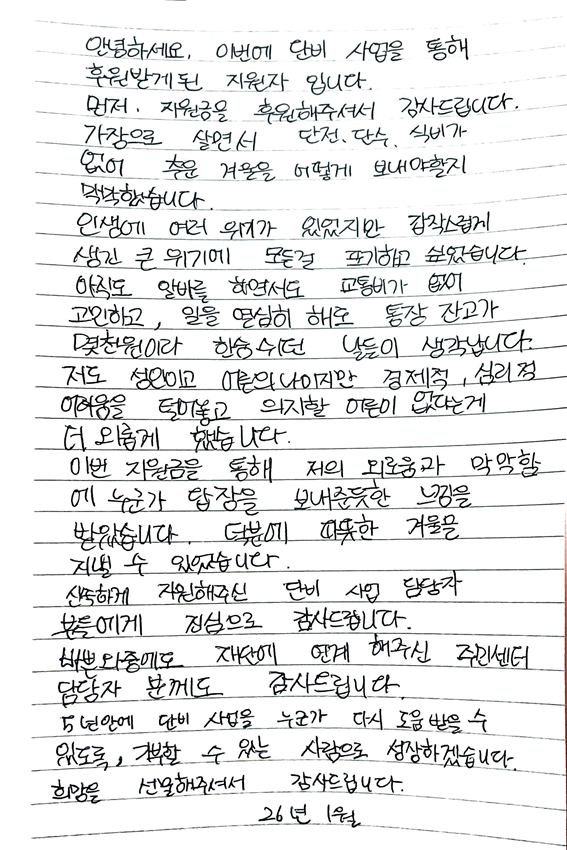 안녕하세요. 이번에 단비 사업을 통해
후원받게 된 지원자 입니다.
먼저. 지원금을 후원해주셔서 감사드립니다.
가장으로 살면서 단전.단수. 식비가
없어 추운 겨울을 어떻게 보내야할지
막막했습니다.
인생에 여러 위기가 있었지만 갑작스럽게
생긴 큰 위기에 모든걸 포기하고 싶었습니다.
아직도 알바를 하면서도 교통비가 없어
고민하고, 일을 열심히 해도 통장 잔고가
몇천원이라 한숨쉬던 날들이 생각납니다.
저도 성인이고 어른의나이지만 경제적, 심리적
어려움을 털어놓고 의지할 어른이 없다는게
더 외롭게 했습니다.
이번 지원금을 통해 저의 외로움과 막막함
에 누군가 답장을 보내준듯한 느낌을
받았습니다. 덕분에 따뜻한 겨울을
지낼 수 있었습니다.
신속하게 지원해주신 단비 사업 담당자
분들에게 진심으로 감사드립니다.
바쁜와중에도 재단에 연계 해주신 주민센터
담당자 분께도 감사드립니다.
5년안에 단비 사업을 누군가 다시 도움 받을 수
있도록, 개척할 수 있는 사람으로 성장하겠습니다.
희망을 선물해주셔서 감사드립니다.
26년 1월